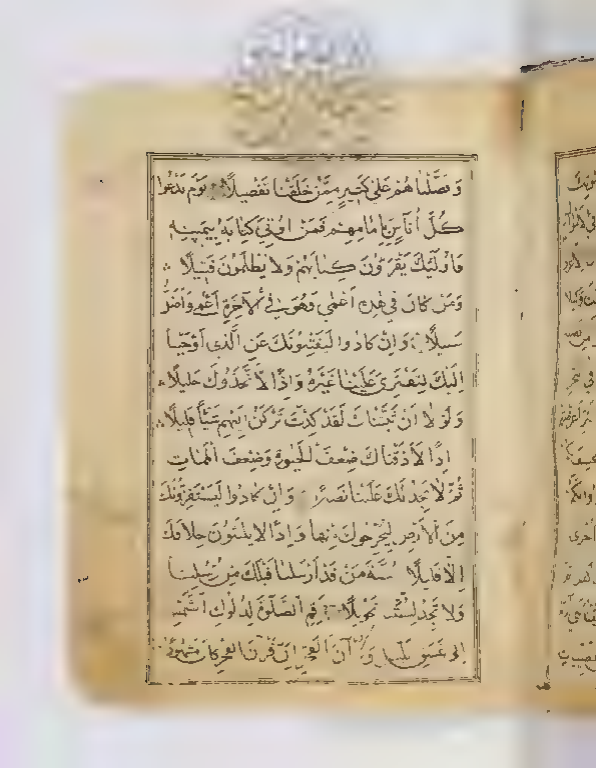 وَفَضَّلْنَاهُمْ عَلَىٰ كَثِيرٍ مِمَّنْ خَلَقْنَا تَفْضِيلًا يَوْمَ نَدْعُوا
كُلَّ أُنَاسٍ بِإِمَامِهِمْ فَمَنْ أُوتِيَ كِتَابَهُ بِيَمِينِهِ
فَأُولَٰئِكَ يَقْرَؤُنَ كِتَابَهُمْ وَلَا يُظْلَمُونَ فَتِيلًا
وَمَنْ كَانَ فِي هَٰذِهِ أَعْمَىٰ فَهُوَ فِي الْآخِرَةِ أَعْمَىٰ وَأَضَلُّ
سَبِيلًا وَإِنْ كَادُوا لَيَفْتِنُونَكَ عَنِ الَّذِي أَوْحَيْنَا
إِلَيْكَ لِتَفْتَرِيَ عَلَيْنَا غَيْرَهُ وَإِذًا لَاتَّخَذُوكَ خَلِيلًا
وَلَوْلَا أَنْ ثَبَّتْنَاكَ لَقَدْ كِدْتَ تَرْكَنُ إِلَيْهِمْ شَيْئًا قَلِيلًا
إِذًا لَأَذَقْنَاكَ ضِعْفَ الْحَيٰوةِ وَضِعْفَ الْمَمَاتِ
ثُمَّ لَا تَجِدُ لَكَ عَلَيْنَا نَصِيرًا وَإِنْ كَادُوا لَيَسْتَفِزُّونَكَ
مِنَ الْأَرْضِ لِيُخْرِجُوكَ مِنْهَا وَإِذًا لَا يَلْبَثُونَ خِلَافَكَ
إِلَّا قَلِيلًا سُنَّةَ مَنْ قَدْ أَرْسَلْنَا قَبْلَكَ مِنْ رُسُلِنَا
وَلَا تَجِدُ لِسُنَّتِنَا تَحْوِيلًا أَقِمِ الصَّلٰوةَ لِدُلُوكِ الشَّمْسِ
إِلَىٰ غَسَقِ اللَّيْلِ وَقُرْآنَ الْفَجْرِ إِنَّ قُرْآنَ الْفَجْرِ كَانَ مَشْهُودًا